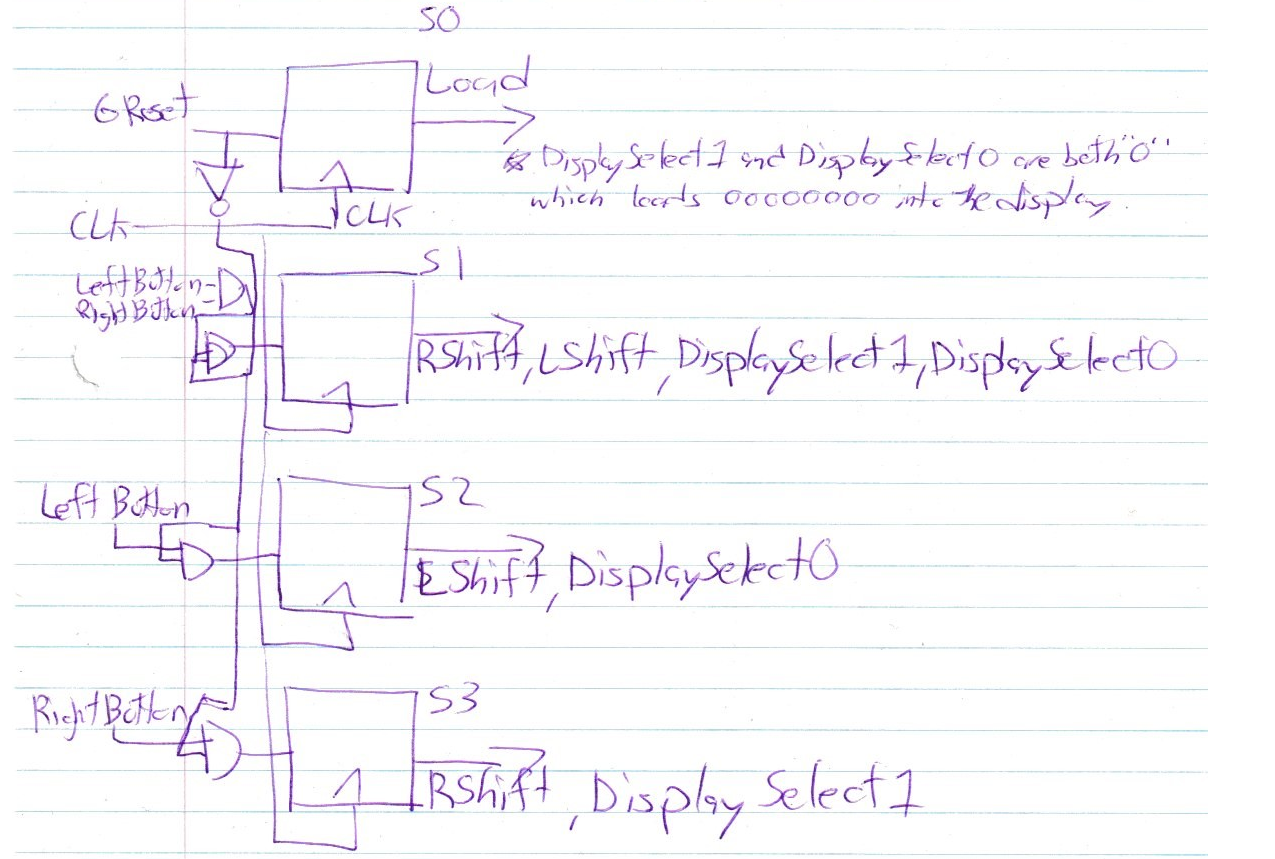 S0
Load
GReset
* DisplaySelect1 and DisplaySelect0 are both "0"
which loads 00000000 into the display.
CLK
CLK
S1
LeftButton
RightButton
RShift, LShift, DisplaySelect1, DisplaySelect0
S2
Left Button
LShift, DisplaySelect0
S3
RightButton
RShift, Display Select1